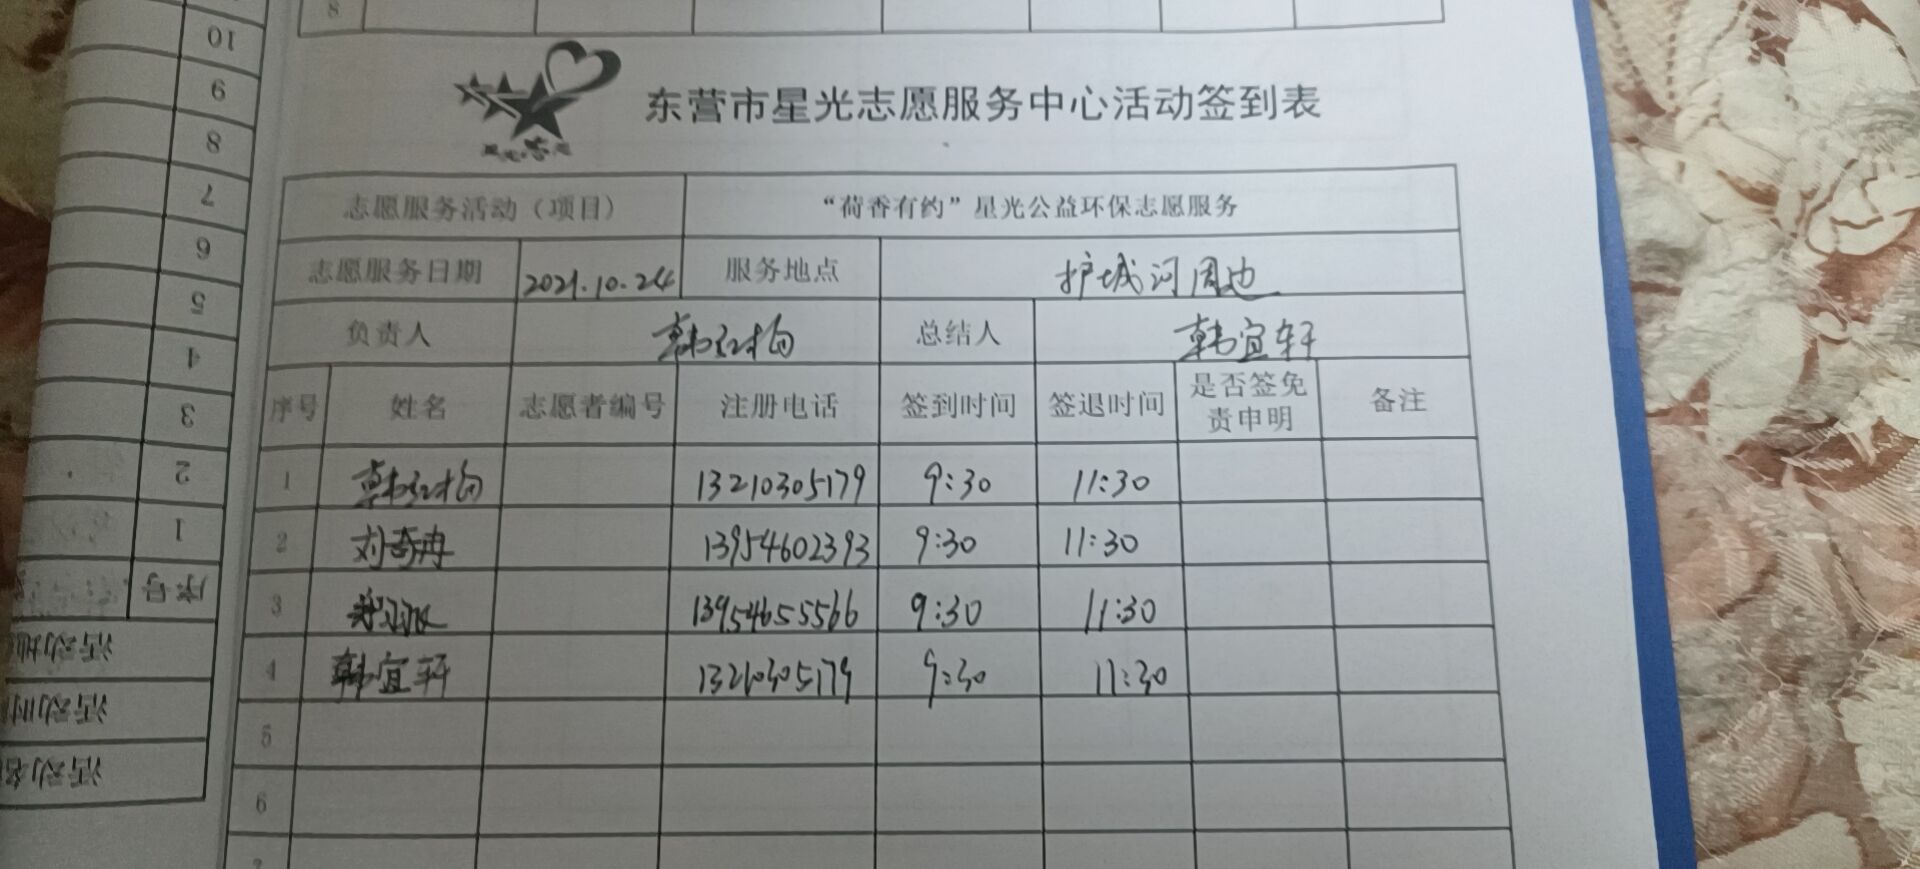 8
东营市星光志愿服务中心活动签到表
志愿服务活动（项目） “荷香有约”星光公益环保志愿服务
志愿服务日期 2021.10.24 服务地点 护城河周边
负责人 韩红梅 总结人 韩宜轩
序号 姓名 志愿者编号 注册电话 签到时间 签退时间 是否签免责申明 备注
1 韩红梅 13210305179 9:30 11:30
2 刘奇冉 13954602393 9:30 11:30
3 13954655566 9:30 11:30
4 韩宜轩 13210305179 9:30 11:30
5
6
7
10
9
8
7
6
5
4
3
2
1
序号
活动地
活动时
活动名